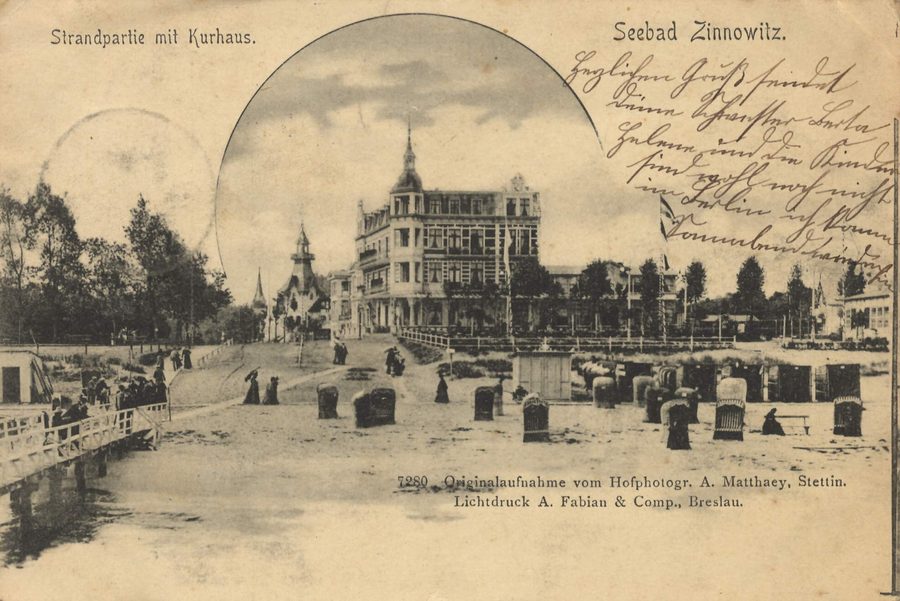 Strandpartie mit Kurhaus.
Seebad Zinnowitz.
Herzlichen Gruß sendet
deine Schwester Berta
Helene und die Kinder
sind wohl noch nicht
in Berlin ich komme
Sonnabend wieder
7280 Originalaufnahme vom Hofphotogr. A. Matthaey, Stettin.
Lichtdruck A. Fabian & Comp., Breslau.